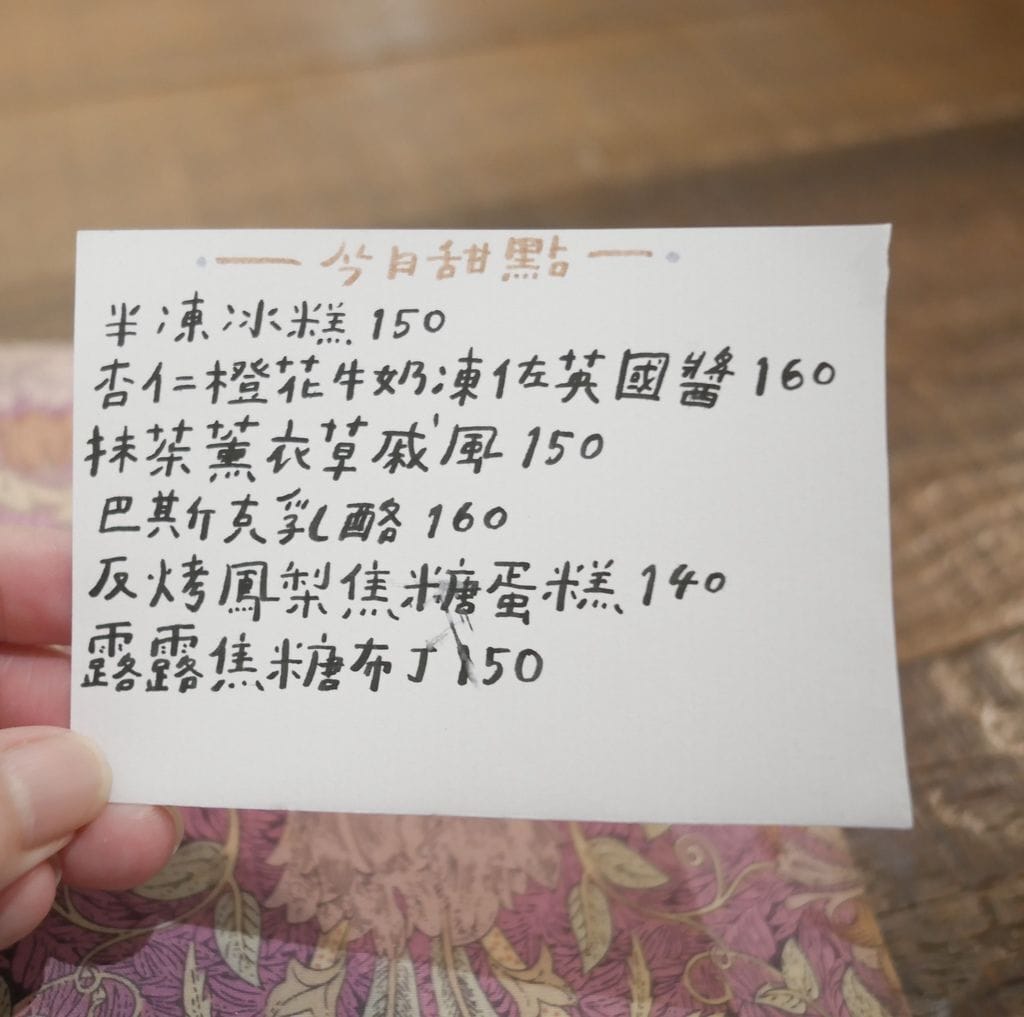 今日甜點
半凍冰糕 150
杏仁橙花牛奶凍佐英國醬 160
抹茶薰衣草戚風 150
巴斯克乳酪 160
反烤鳳梨焦糖蛋糕 140
露露焦糖布丁 150